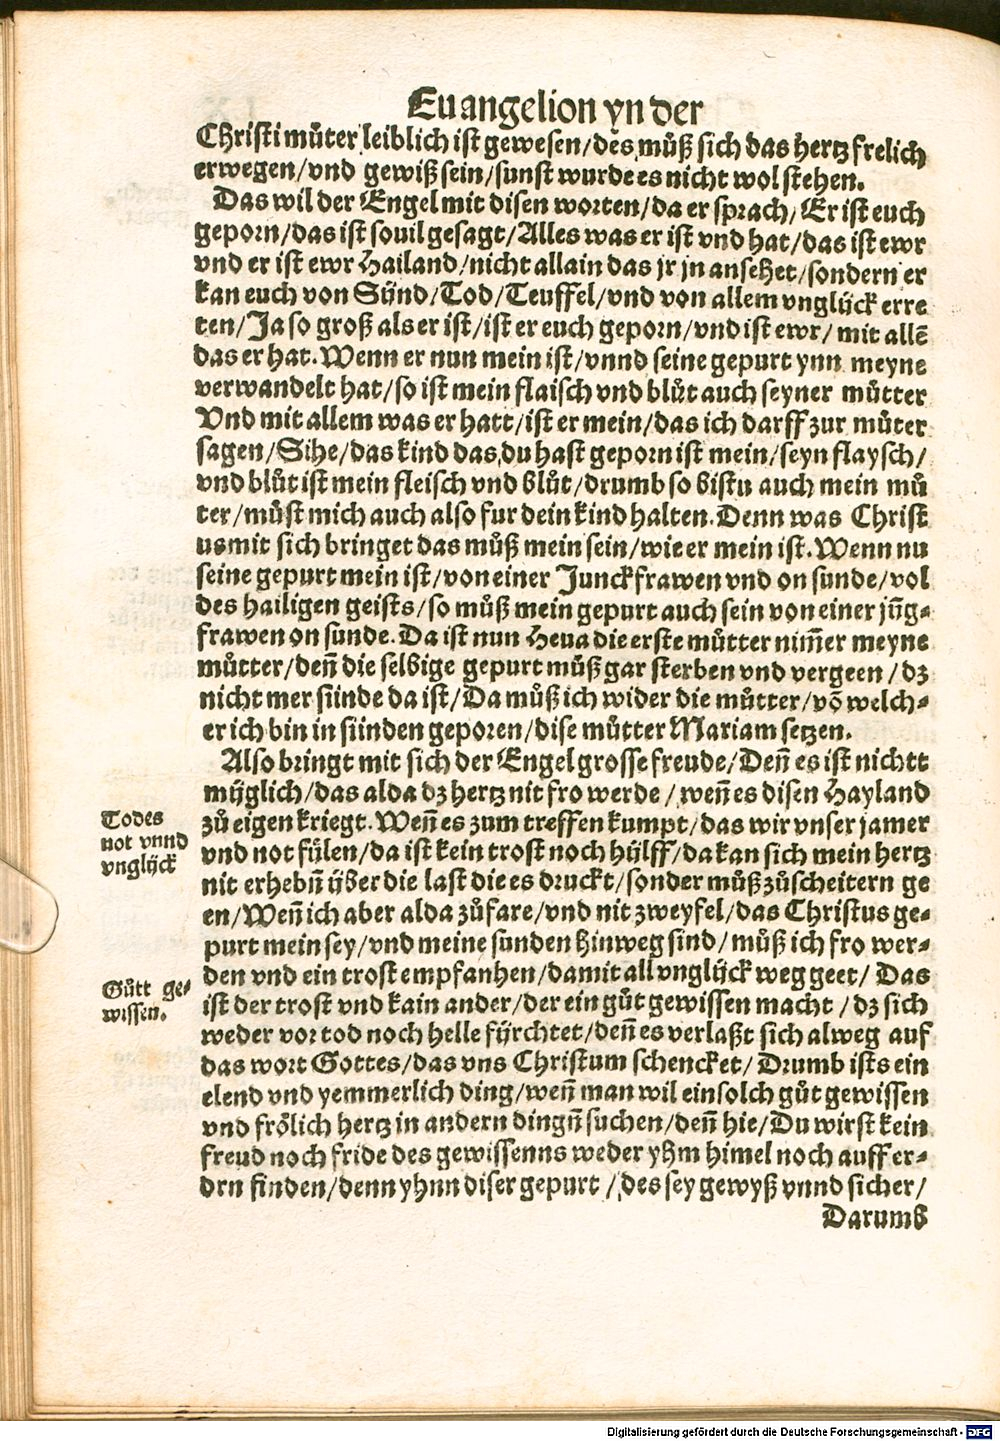 Euangelion yn der
Christi můter leiblich ist gewesen/des můß sich das hertz frelich
erwegen/vnd gewiß sein/sunst wurde es nicht wol stehen.
Das wil der Engel mit disen worten/da er sprach/Er ist euch
geporn/das ist souil gesagt/Alles was er ist vnd hat/das ist ewr
vnd er ist ewr Hailand/nicht allain das jr jn ansehet/sondern er
kan euch von Sünd/Tod/Teuffel/vnd von allem vnglück erre
ten/Ja so groß als er ist/ist er euch geporn/vnd ist ewr/mit allē
das er hat. Wenn er nun mein ist/vnnd seine gepurt ynn meyne
verwandelt hat/so ist mein flaisch vnd blůt auch seyner můtter
Vnd mit allem was er hatt/ist er mein/das ich darff zur můter
sagen/Sihe/das kind das du hast geporn ist mein/seyn flaysch/
vnd blůt ist mein fleisch vnd blůt/drumb so bistu auch mein mů
ter/můst mich auch also fur dein kind halten. Denn was Christ
us mit sich bringet das můß mein sein/wie er mein ist. Wenn nu
seine gepurt mein ist/von einer Junckfrawen vnd on sunde/vol
des hailigen geists/so můß mein gepurt auch sein von einer jūg-
frawen on sunde. Da ist nun Heua die erste můtter nim̄er meyne
můtter/den̄ die selbige gepurt můß gar sterben vnd vergeen/dz
nicht mer sünde da ist/Da můß ich wider die můtter/vō welch-
er ich bin in sünden geporen/dise můtter Mariam setzen.
Also bringt mit sich der Engel grosse freude/Den̄ es ist nichtt
müglich/das alda dz hertz nit fro werde/wen̄ es disen Hayland
zů eigen kriegt. Wen̄ es zum treffen kumpt/das wir vnser jamer
vnd not fülen/da ist kein trost noch hülff/da kan sich mein hertz
nit erhebn̄ über die last die es druckt/sonder můß zůscheitern ge
en/Wen̄ ich aber alda zůfare/vnd nit zweyfel/das Christus ge-
purt mein sey/vnd meine sunden hinweg sind/můß ich fro wer-
den vnd ein trost empfanhen/damit all vnglück weg geet/Das
ist der trost vnd kain ander/der ein gůt gewissen macht/dz sich
weder vor tod noch helle fürchtet/den̄ es verlaßt sich alweg auf
das wort Gottes/das vns Christum schencket/Drumb ists ein
elend vnd yemmerlich ding/wen̄ man wil ein solch gůt gewissen
vnd frölich hertz in andern dingn̄ suchen/den̄ hie/Du wirst kein
freud noch fride des gewissenns weder yhm himel noch auff er-
drn finden/denn yhnn diser gepurt/des sey gewyß vnnd sicher/
Darumb
Todes
not vnnd
vnglück
Gůtt ge-
wissen.
Digitalisierung gefördert durch die Deutsche Forschungsgemeinschaft - DFG